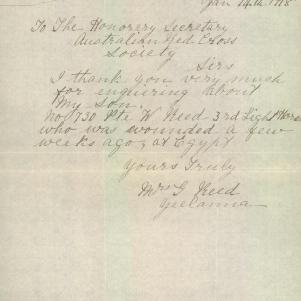 Jan 14th 1918
To The Honorery Secretary
Australian Red Cross
Society
Sirs
I thank you very much
for enquiring about
My Son.
No 730 Pte W Reed 3rd Light Horse
who was wounded a few
weeks ago, at Egypt
Yours Truly
Mrs G Reed
Yeelanna